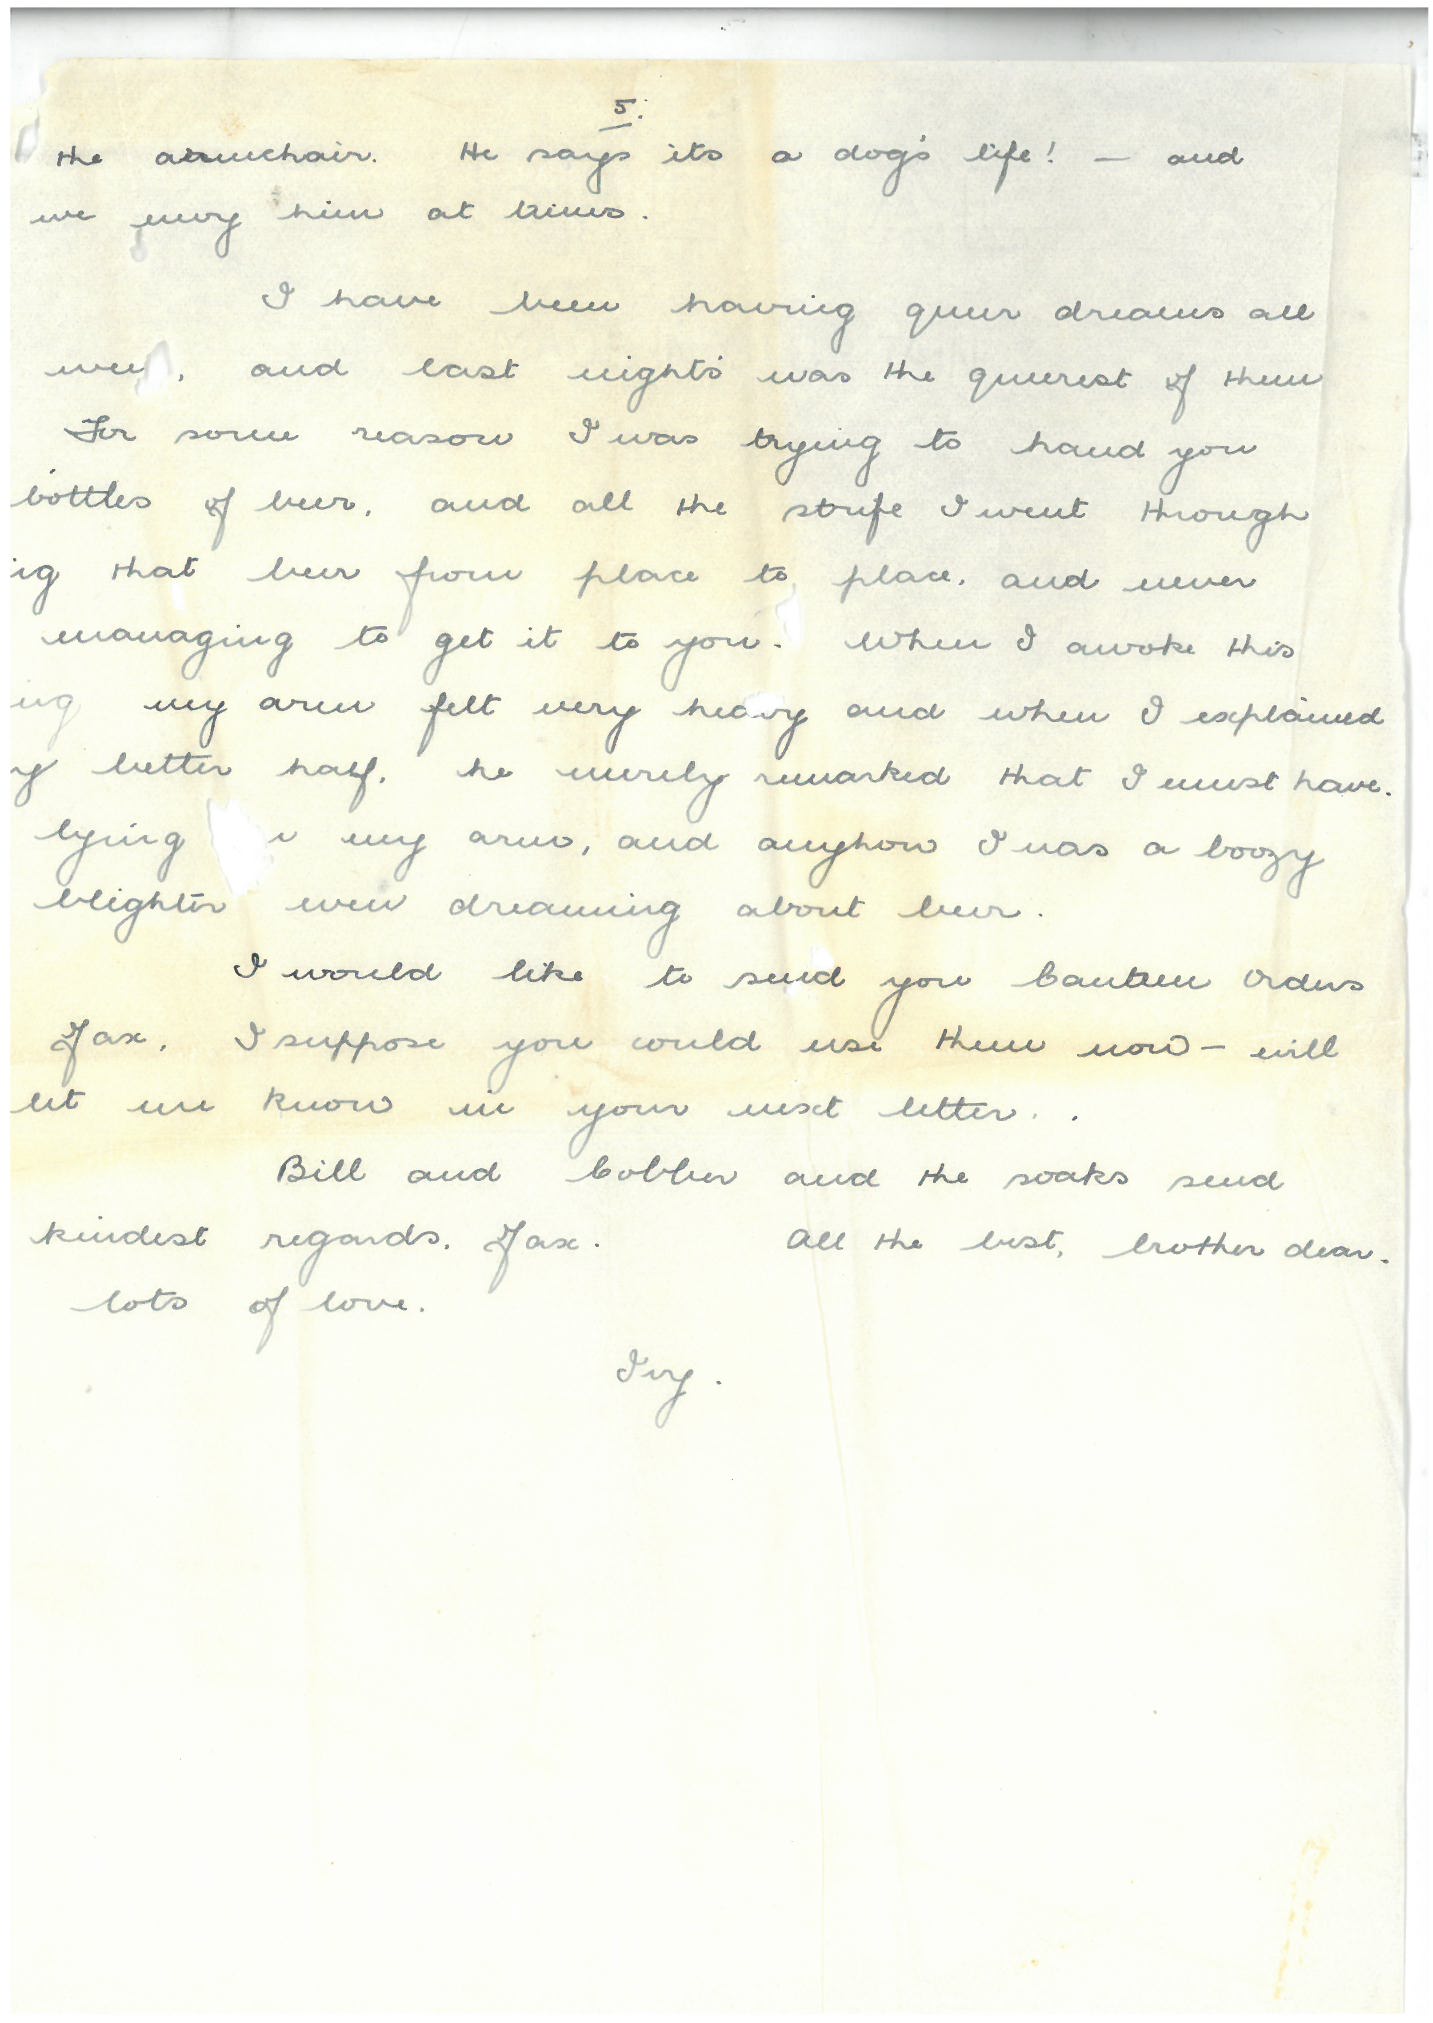 5.
the armchair. He says its a dog's life! — and
we envy him at times.
I have been having queer dreams all
, and last night's was the queerest of them
For some reason I was trying to hand you
bottles of beer, and all the strife I went through
ig that beer from place to place, and never
managing to get it to you. When I awoke this
ing my arm felt very heavy and when I explained
y better half, he merely remarked that I must have.
lying my arm, and anyhow I was a boozy
blighter even dreaming about beer.
I would like to send you Canteen Orders
Jax. I suppose you could use them now — will
let me know in your next letter. .
Bill and Cobber and the soaks send
kindest regards. Jax. All the best, brother dear.
lots of love.
Ivy.